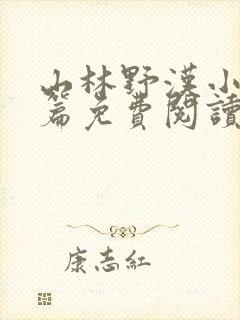 山林野漢小
篇免費閱讀
康志紅